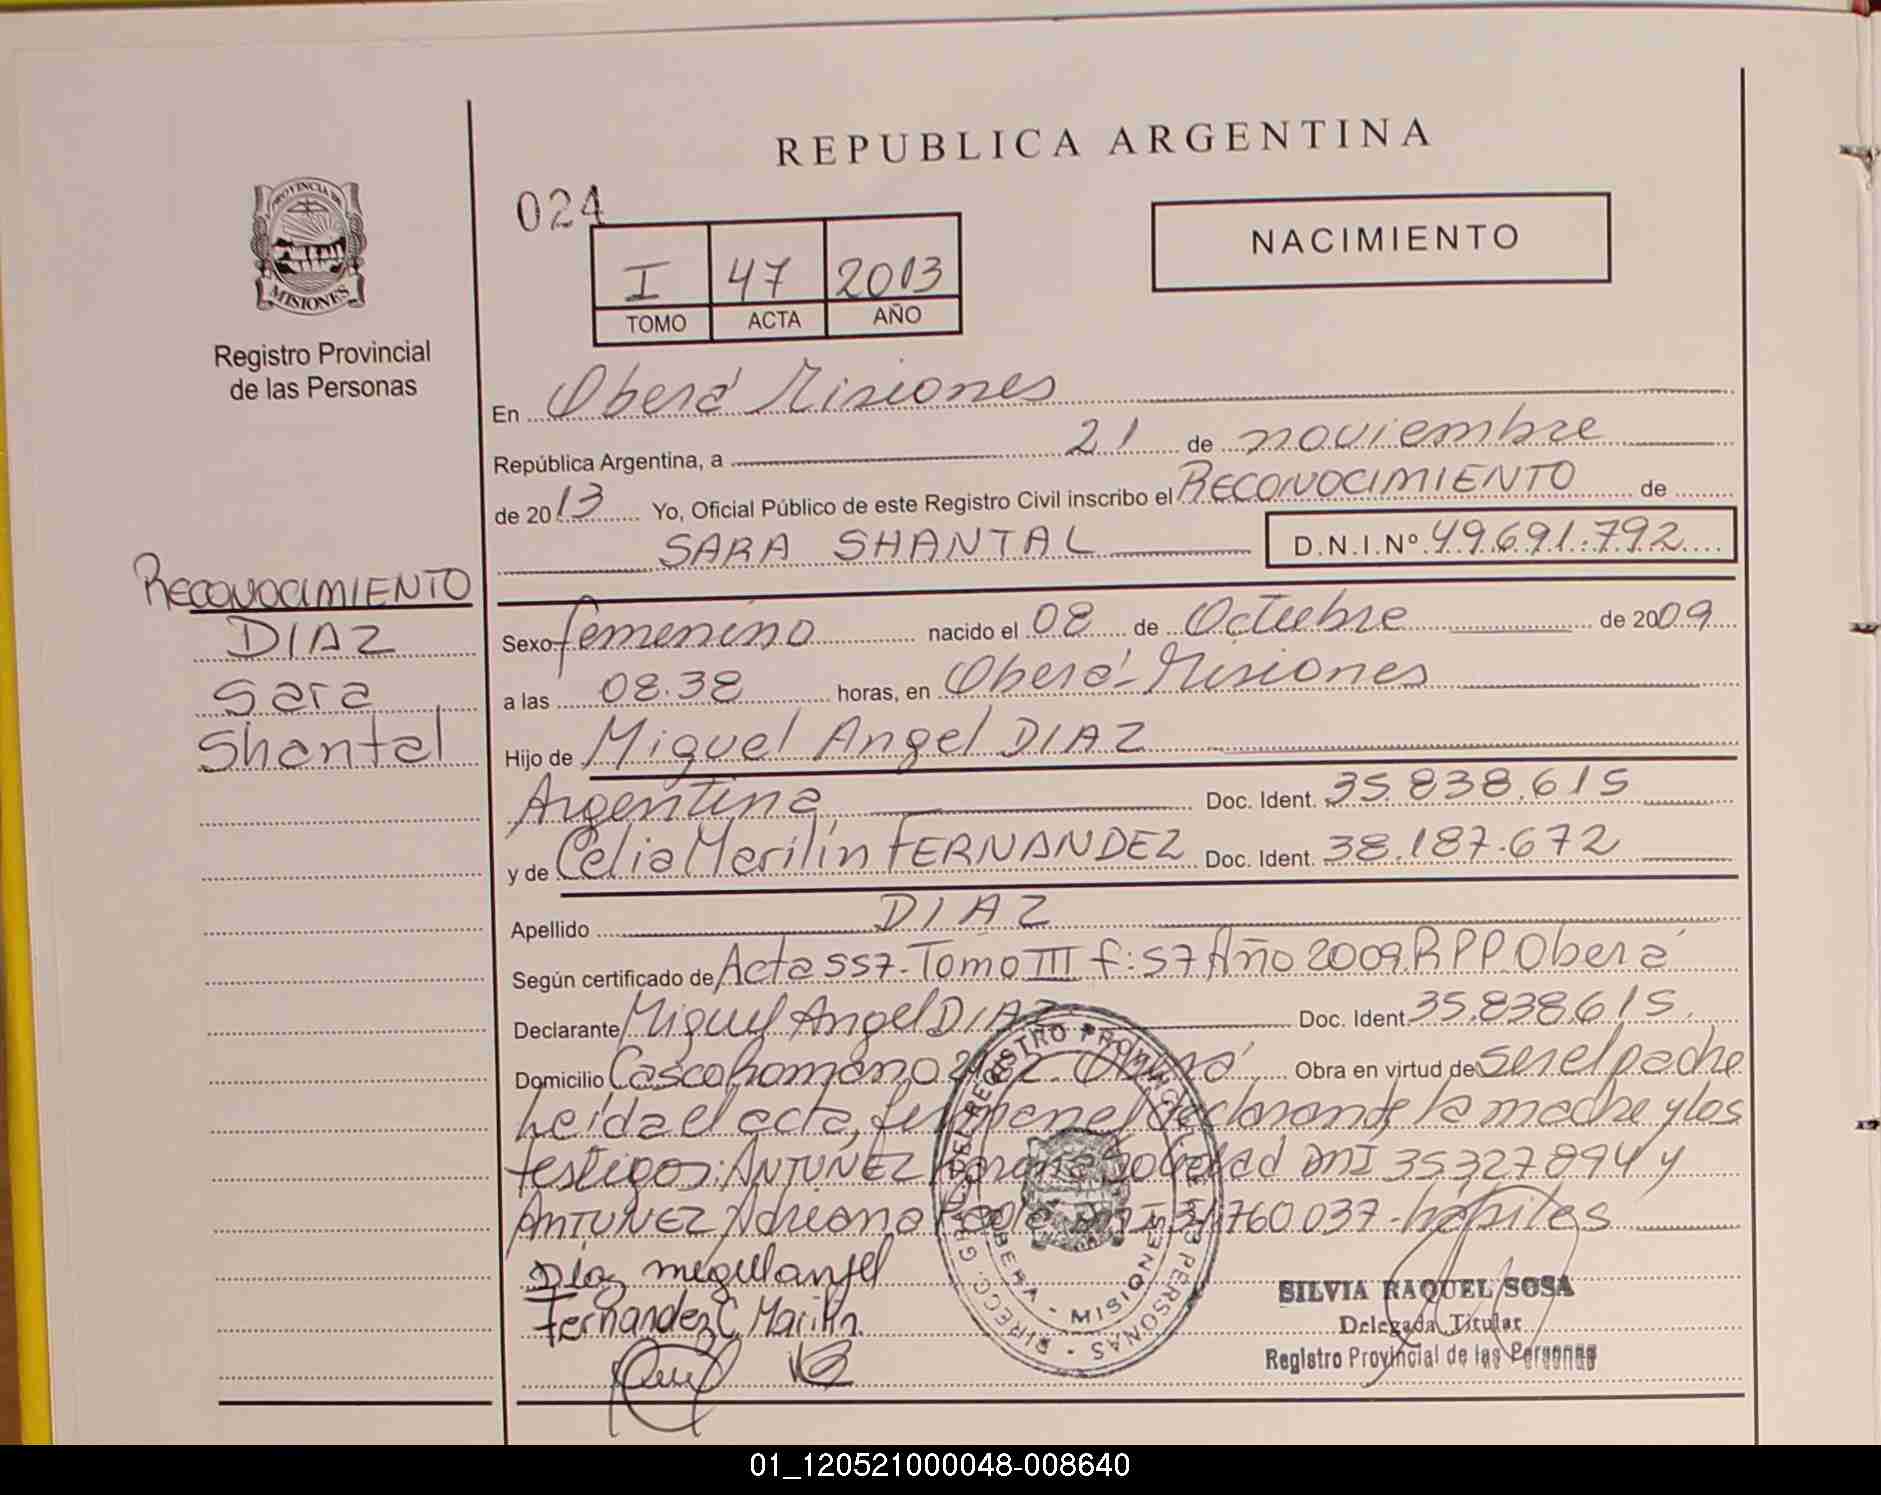 REPUBLICA ARGENTINA
024
NACIMIENTO
I 47 2013
TOMO ACTA AÑO
PROVINCIA DE
MISIONES
Registro Provincial
de las Personas
En Oberá Misiones
República Argentina, a 21 de noviembre
de 2013 Yo, Oficial Público de este Registro Civil inscribo el RECONOCIMIENTO de
SARA SHANTAL D.N.I.Nº 49.691.792
RECONOCIMIENTO
DIAZ
Sara
Shantal
Sexo femenino nacido el 08 de Octubre de 2009
a las 08.38 horas, en Oberá-Misiones
Hijo de Miguel Angel DIAZ
Argentina Doc. Ident. 35.838.615
y de Celia Marilín FERNANDEZ Doc. Ident. 38.187.672
Apellido DIAZ
Según certificado de Acta 557-Tomo III f:57 Año 2009.RPP.Oberá
Declarante Miguel Angel DIAZ Doc. Ident 35.838.615
Domicilio Oberá Obra en virtud de ser el padre
Leída el acta, firman el declarante, la madre y los
testigos: ANTUÑEZ Soledad DNI 35327894 y
ANTUÑEZ Adriana Paola DNI 760.037-hábiles
Díaz miguel angel
Fernandez C. Marilin
DIRECC. GRAL. DEL REGISTRO PROVINCIAL DE LAS PERSONAS
OBERA - MISIONES
SILVIA RAQUEL SOSA
Delegada Titular
Registro Provincial de las Personas
01_120521000048-008640